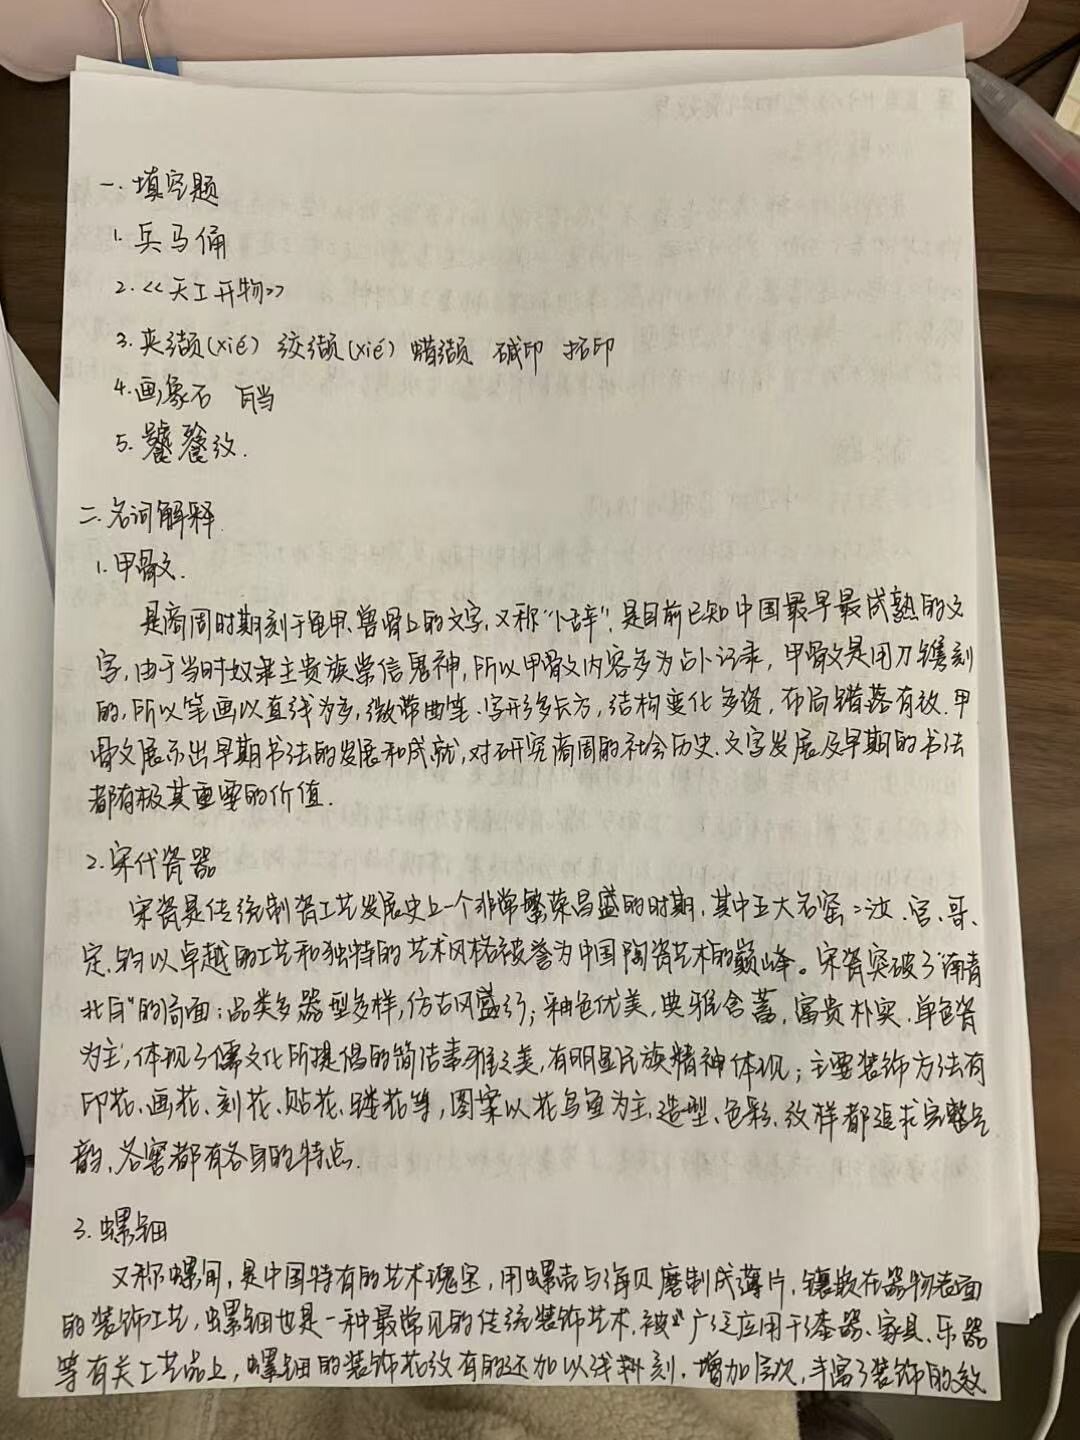 一.填空题
1.兵马俑
2.<<天工开物>>
3.夹缬(xié) 绞缬(xié) 蜡缬 碱印 拓印
4.画象石 瓦当
5.饕餮纹.
二.名词解释
1.甲骨文.
是商周时期刻于龟甲、兽骨上的文字,又称"卜辞",是目前已知中国最早最成熟的文
字,由于当时奴隶主贵族崇信鬼神,所以甲骨文内容多为占卜记录,甲骨文是用刀镌刻
的,所以笔画以直线为多,微带曲笔.字形多长方,结构变化多姿,布局错落有致.甲
骨文展示出早期书法的发展和成就,对研究商周的社会历史、文字发展及早期的书法
都有极其重要的价值.
2.宋代瓷器
宋瓷是传统制瓷工艺发展史上一个非常繁荣昌盛的时期,其中五大名窑:汝、官、哥、
定、钧以卓越的工艺和独特的艺术风格被誉为中国陶瓷艺术的巅峰。宋瓷突破了"南青
北白"的局面;品类多器型多样,仿古风盛行;釉色优美,典雅含蓄,富贵朴实.单色瓷
为主,体现了儒文化所提倡的简洁素雅之美,有明显民族精神体现;主要装饰方法有
印花、画花、刻花、贴花、镂花等,图案以花鸟鱼为主.造型、色彩、纹样都追求完整气
韵,各窑都有各自的特点.
3.螺钿
又称螺甸,是中国特有的艺术瑰宝,用螺壳与海贝磨制成薄片,镶嵌在器物表面
的装饰工艺,螺钿也是一种最常见的传统装饰艺术.被广泛应用于漆器、家具、乐器
等有关工艺品上,螺钿的装饰花纹有的还加以线刻.增加层次,丰富了装饰的效